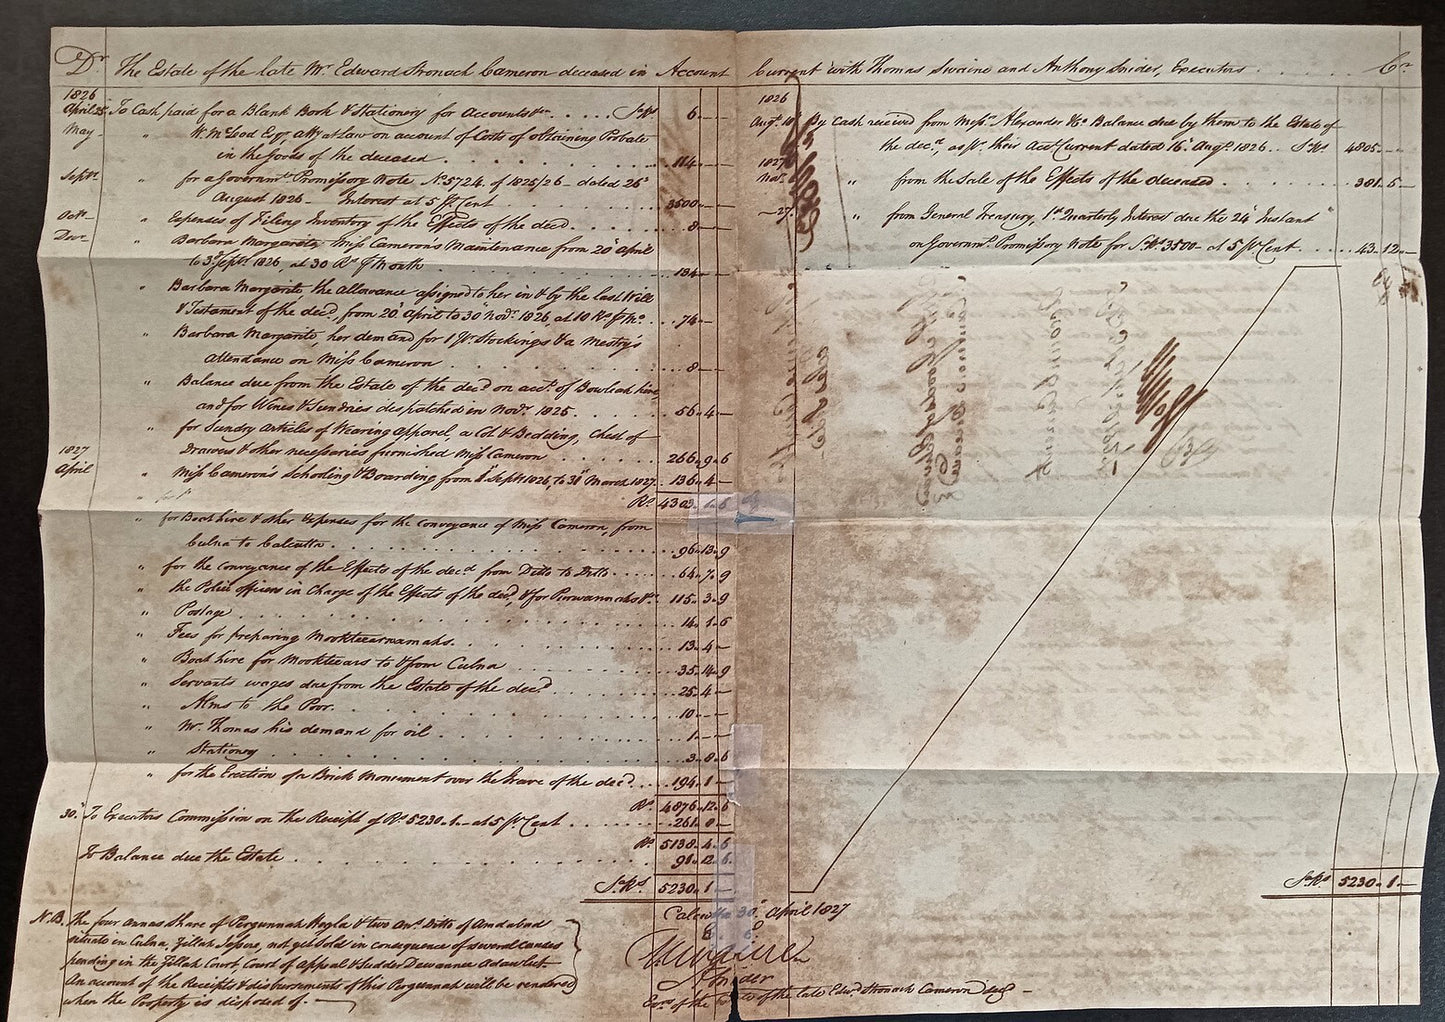 Dr The Estate of the late Mr Edward Stronach Cameron deceased in Account Current with Thomas Swaine and Anthony Snider, Executors Cr
1826
April 25 To Cash paid for a Blank Book & Stationery for Accounts &ca Sa Rs 6 - -
May " W. McLeod Esqr atty at Law on account of Costs of obtaining Probate
in the goods of the deceased 114 - -
Septr " for a Governmt Promissory Note No 5724 of 1825/26 - dated 26th
August 1826 - Interest at 5 Pr Cent 3500 - -
Octr " Expenses of Filing Inventory of the Effects of the decd 8 - -
Decr " Barbara Margarite, Miss Cameron's Maintenance from 20th April
to 3d Septr 1826, at 30 Rs P Month 134 - -
" Barbara Margarite the allowance assigned to her in & by the last Will
& Testament of the decd, from 20th April to 30th Novr 1826, at 10 Rs P Mo 74 -
" Barbara Margarite, her demand for 1 Pr Stockings & a Mestry's
attendance on Miss Cameron 8 -
" Balance due from the Estate of the decd on acct of Bowleah hire
and for Wines & Sundries dispatched in Novr 1825 56 4 -
" for Sundry articles of Wearing apparel, a Cot & Bedding, Chest of
drawers & other necessaries furnished Miss Cameron 266 9 6
1827
April " Miss Cameron's schooling & Boarding from Septr 1826, to 31st March 1827 136 4 -
Rs 4303 1 6
" for Boat hire & other Expenses for the conveyance of Miss Cameron, from
Culna to Calcutta 96 13 9
" for the conveyance of the Effects of the decd from Ditto to Ditto 64 7 9
" the Police officers in Charge of the Effects of the decd, & for Purwannahs &ca 115 3 9
" Postage 14 1 6
" Fees for preparing Mookteearnamahs 13 4 -
" Boat hire for Mookteears to & from Culna 35 14 9
" Servants wages due from the Estate of the decd 25 4 -
" Alms to the Poor 10 - -
" Mr Thomas his demand for oil 1 - -
" Stationery 3 8 6
" for the Erection of a Brick Monument over the Grave of the decd 194 1 -
Rs 4876 12 6
30th To Executors Commission on the Receipt of Rs 5230.1 - at 5 Pr Cent 261 8 -
Rs 5138 4 6
To Balance due the Estate 91 12 6
Sa Rs 5230 1 -
N.B. the four annas Share of Pergunnah Hogla & two ans Ditto of Amdabad
situate in Culna, Zillah Jessore, not yet sold in consequence of several causes
pending in the Zillah Court, Court of Appeal & Sudder Dewannee Adawlut.
An account of the Receipts & disbursements of this Pergunnah will be rendered
when the Property is disposed of.
1826
Augt 18 By Cash received from Messrs Alexander & Co Balance due by them to the Estate of
the decd, as pr their Acct Current dated 16th Augt 1826 Sa Rs 4805 - -
1827
Mar " from the Sale of the Effects of the deceased 381 5 -
27 " from General Treasury, 1st Quarterly Interest due the 24th Instant
on Governmt Promissory Note for Sa Rs 3500 - at 5 Pr Cent 43 12 -
Sa Rs 5230 1 -
Calcutta 30th April 1827
E. E.
T. Swaine
A. Snider
Exrs of the Estate of the late Edwd Stronach Cameron decd